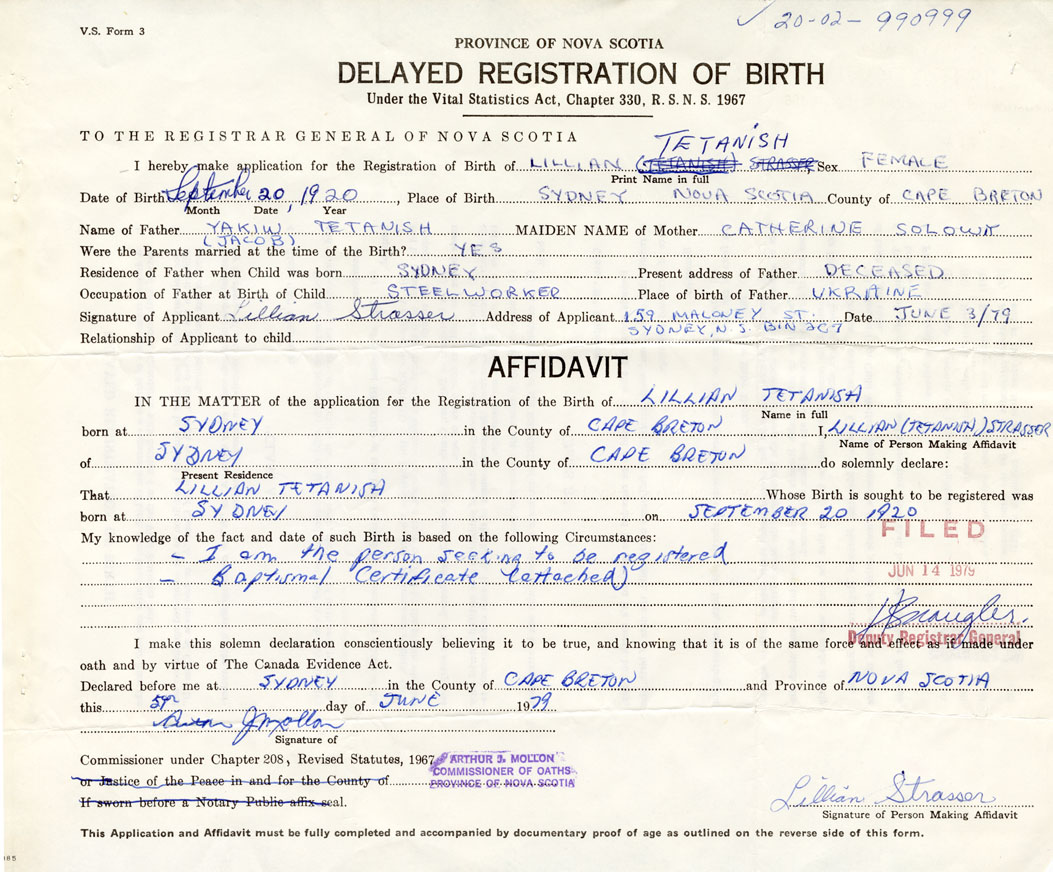 20-02-990999
V.S. Form 3
PROVINCE OF NOVA SCOTIA
DELAYED REGISTRATION OF BIRTH
Under the Vital Statistics Act, Chapter 330, R.S.N.S. 1967
TO THE REGISTRAR GENERAL OF NOVA SCOTIA
TETANISH
I hereby make application for the Registration of Birth of LILLIAN (TETANISH) STRASSER Sex FEMALE
Print Name in full
Date of Birth September 20, 1920, Place of Birth SYDNEY NOVA SCOTIA County of CAPE BRETON
Month Date Year
Name of Father YAKIW TETANISH MAIDEN NAME of Mother CATHERINE SOLOWY
(JACOB)
Were the Parents married at the time of the Birth? YES
Residence of Father when Child was born SYDNEY Present address of Father DECEASED
Occupation of Father at Birth of Child STEELWORKER Place of birth of Father UKRAINE
Signature of Applicant Lillian Strasser Address of Applicant 159 MALONEY ST. Date JUNE 3/79
SYDNEY, N.S. B1N 2G7
Relationship of Applicant to child
AFFIDAVIT
IN THE MATTER of the application for the Registration of the Birth of LILLIAN TETANISH
Name in full
born at SYDNEY in the County of CAPE BRETON I, LILLIAN (TETANISH) STRASSER
Name of Person Making Affidavit
of SYDNEY in the County of CAPE BRETON do solemnly declare:
Present Residence
That LILLIAN TETANISH Whose Birth is sought to be registered was
born at SYDNEY on SEPTEMBER 20 1920
FILED
My knowledge of the fact and date of such Birth is based on the following Circumstances:
- I am the person seeking to be registered
- Baptismal Certificate (attached)
JUN 14 1979
Deputy Registrar General
I make this solemn declaration conscientiously believing it to be true, and knowing that it is of the same force and effect as if made under
oath and by virtue of The Canada Evidence Act.
Declared before me at SYDNEY in the County of CAPE BRETON and Province of NOVA SCOTIA
this 5th day of JUNE 1979
Signature of
Commissioner under Chapter 208, Revised Statutes, 1967
ARTHUR J. MOLLON
COMMISSIONER OF OATHS
PROVINCE OF NOVA SCOTIA
or Justice of the Peace in and for the County of
If sworn before a Notary Public affix seal.
Lillian Strasser
Signature of Person Making Affidavit
This Application and Affidavit must be fully completed and accompanied by documentary proof of age as outlined on the reverse side of this form.